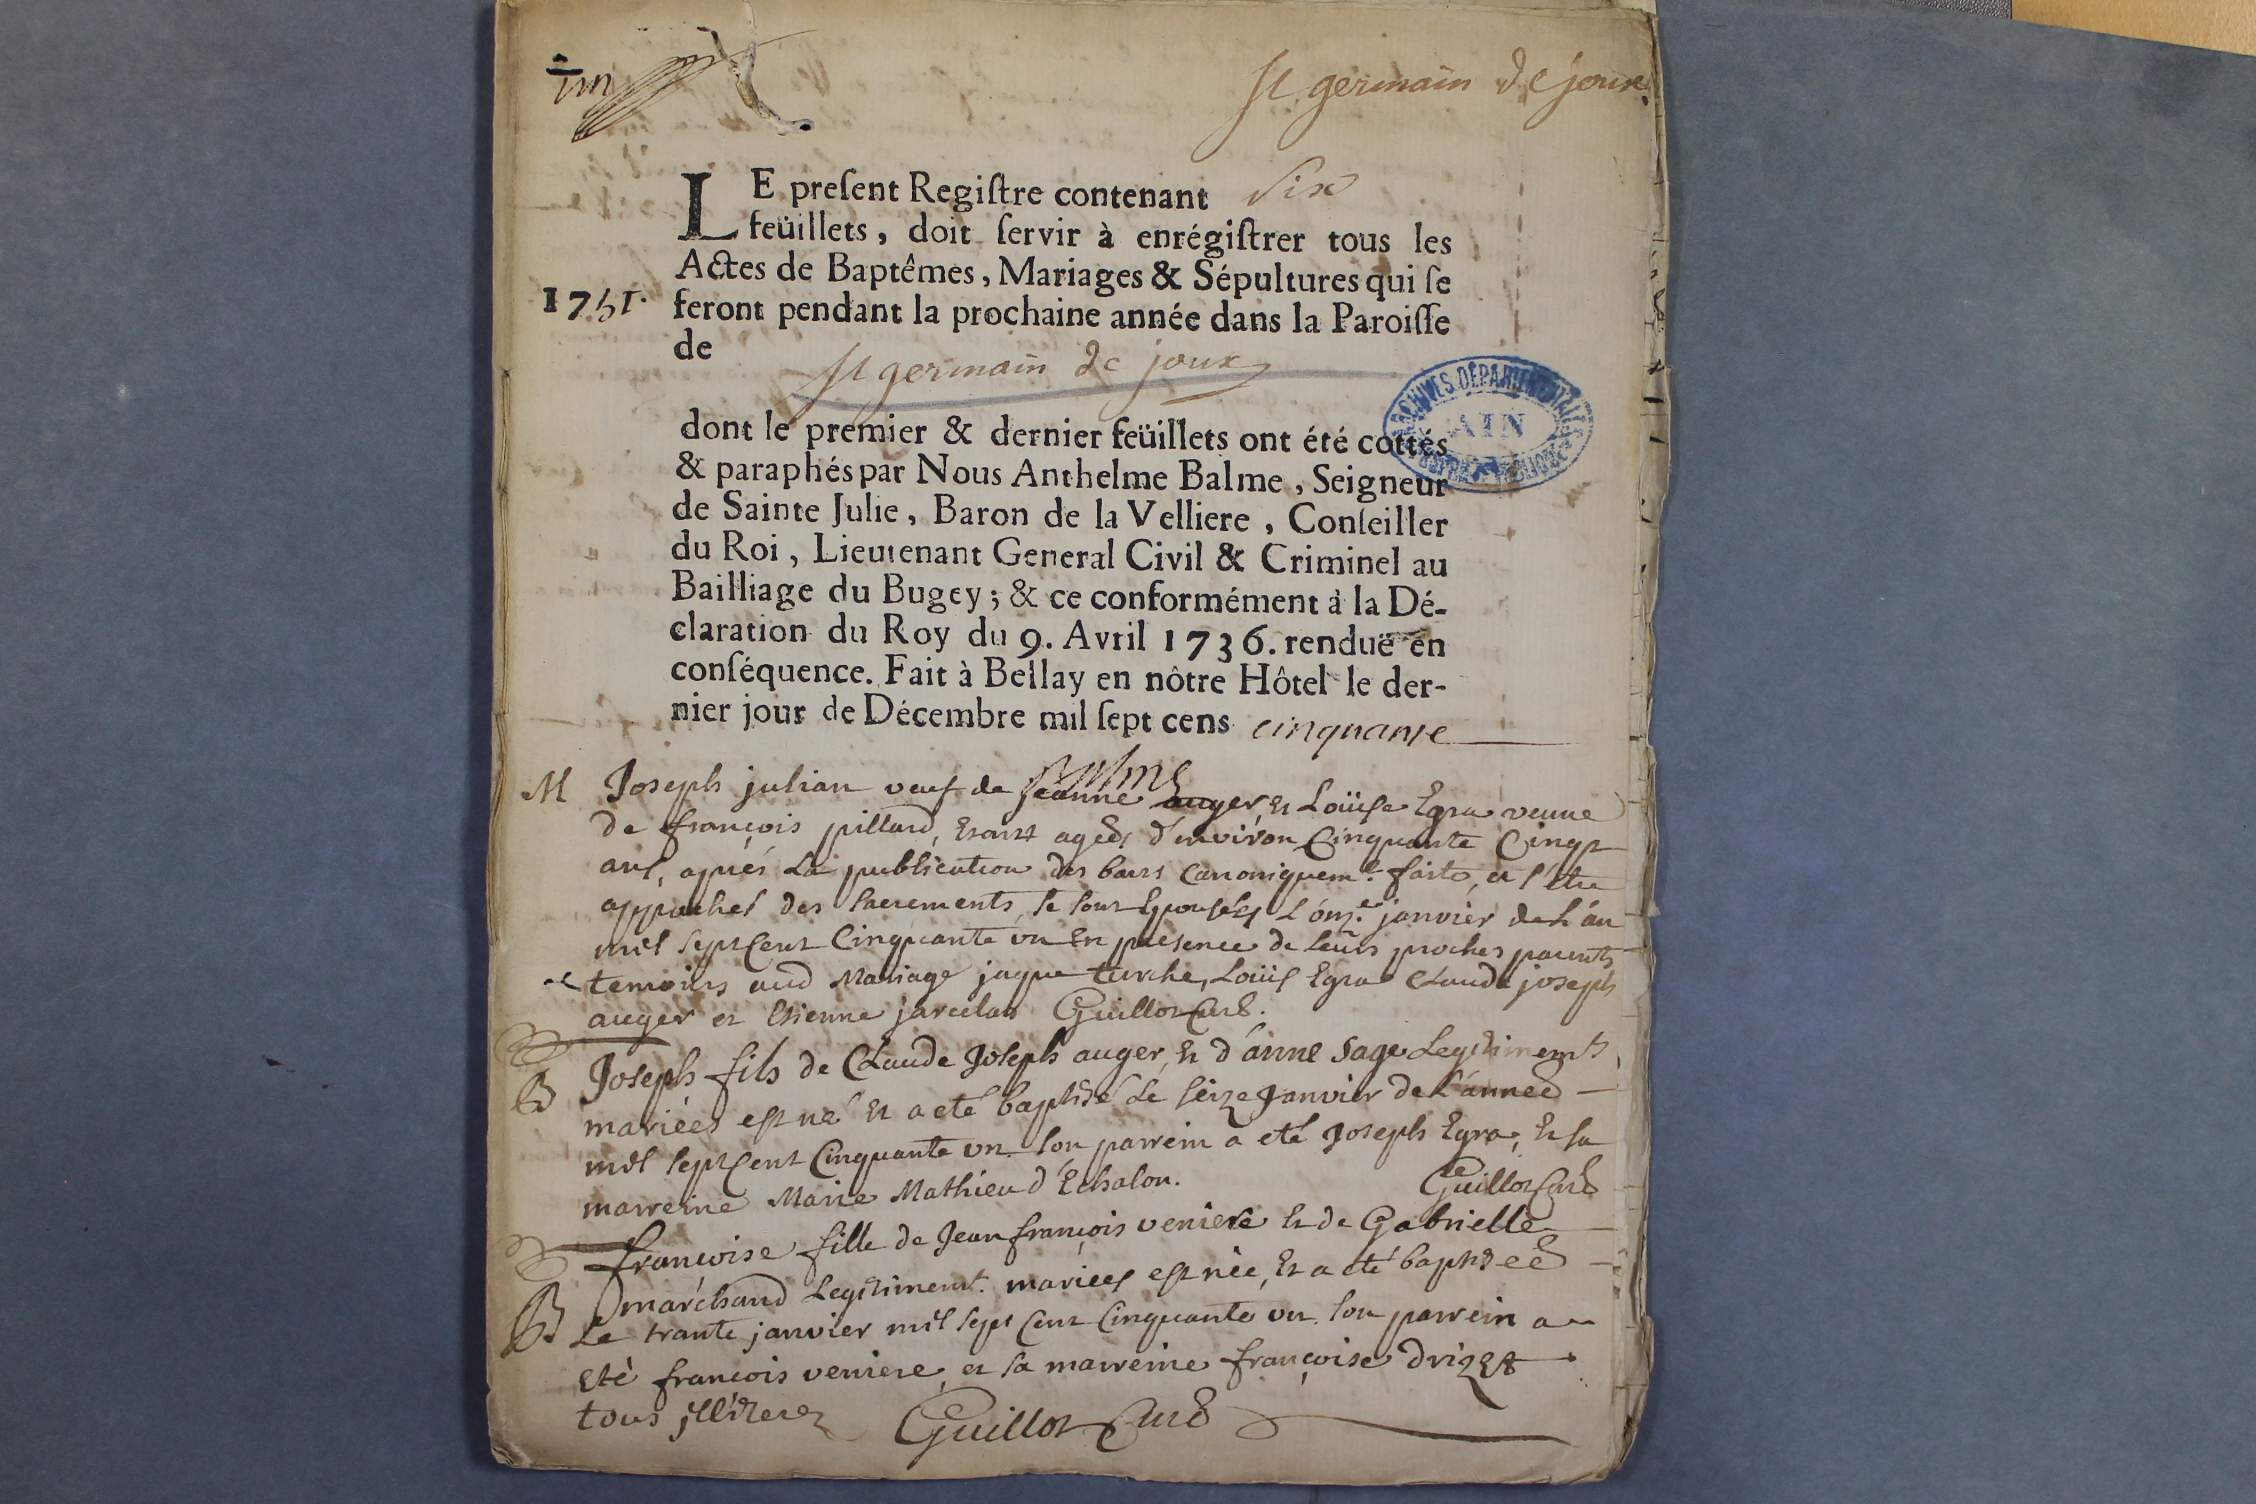 St germain de joux.
LE preſent Regiſtre contenant Six
feüillets, doit ſervir à enrégiſtrer tous les
Actes de Baptêmes, Mariages & Sépultures qui ſe
1751. feront pendant la prochaine année dans la Paroiſſe
de
St germain de joux
dont le premier & dernier feüillets ont été cottés
& paraphés par Nous Anthelme Balme, Seigneur
de Sainte Julie, Baron de la Velliere, Conſeiller
du Roi, Lieutenant General Civil & Criminel au
Bailliage du Bugey; & ce conformément à la Dé-
claration du Roy du 9. Avril 1736. renduë en
conſéquence. Fait à Bellay en nôtre Hôtel le der-
nier jour de Décembre mil ſept cens cinquante
Balme
ARCHIVES DÉPARTEMENTALES
AIN
M Joseph julian veuf de jeanne auger, et Loüise Egra veuue
de françois pillard, agéés d'environ Cinquante Cinq
ans, aprés La publication des bans Canoniquemt. faite, et s'être
approchés des sacrements, se sont Epousés L'onze janvier de L'an
mil sept Cent Cinquante un En présence de leurs proches parents
temoins aud Mariage jaque turche, Loüis Egra Claude joseph
auger et Etienne Guillot Curé.
B Joseph fils de Claude Joseph auger, et d'anne Sage Legitiments
mariéés est né Et a eté baptisé Le seize Janvier de L'anneé
mil sept Cent Cinquante un son parrein a eté Joseph Egra, Et sa
marreine Marie Mathieu d'Echalon. Guillot Curé
françoise fille de Jean françois veniere Et de Gabrielle
B marchand Legitiment. mariéés est née, Et a eté baptisée
Le trante janvier mil sept Cent Cinquante un son parrein a
eté françois veniere, et sa marreine françoise
tous illiterez Guillot Curé